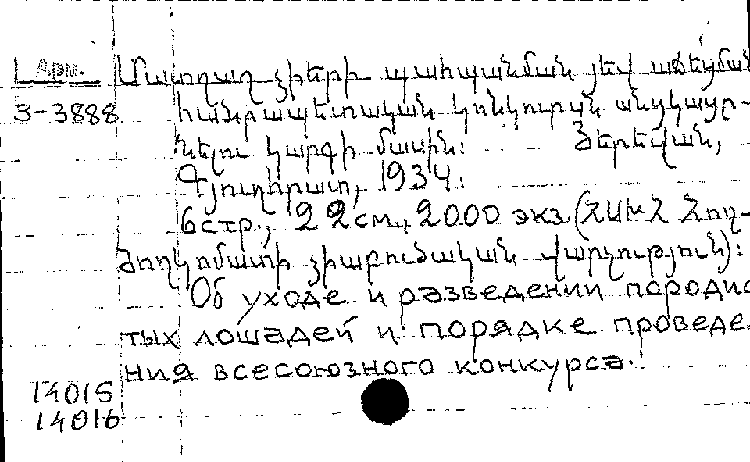 Арм. Մատղաշ ձիերի պահպանման յեվ աճեցման
3-3888 հանրապետական կոնկուրսն անցկացր-
նելու կարգի մասին: Յերեվան,
Գյուղհրատ, 1934.
6 стр., 22 см., 2000 экз. (ՀՍԽՀ Հող-
ժողկոմատի ձիաբուծական վարչություն):
Об уходе и разведении породис
тых лошадей и порядке проведе
ния всесоюзного конкурса.
14015
14016